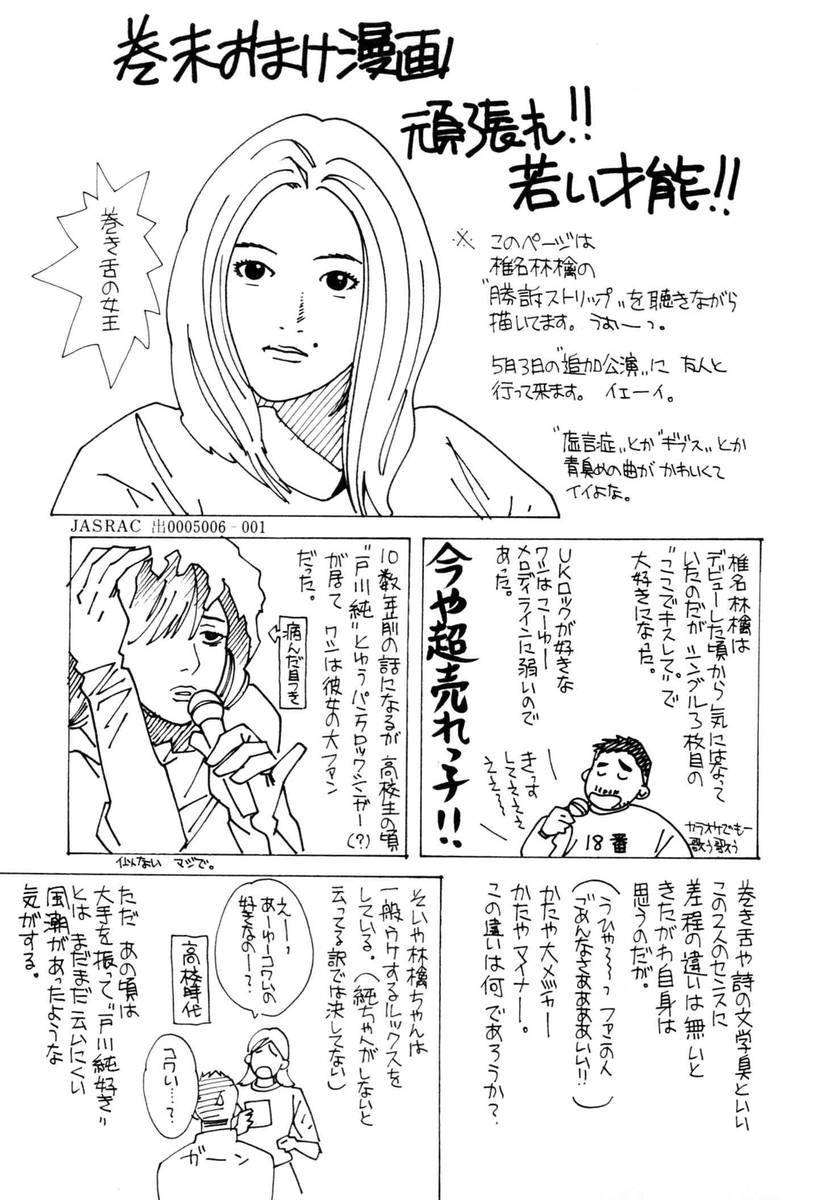 巻末おまけ漫画!
頑張れ!!
若い才能!!
巻き舌の女王
※ このページは
椎名林檎の
"勝訴ストリップ"を聴きながら
描いてます。うおーっ。
5月3日の"追加公演"に 友人と
行って来ます。イェーイ。
"虚言症"とか"ギブス"とか
青臭めの曲が かわいくて
イイよな。
JASRAC 出0005006-001
椎名林檎は
デビューした頃から気にはなって
いたのだが シングル3枚目の
"ここでキスして。"で
大好きになった。
UKロックが好きな
ワシはこーゆー
メロディラインに弱いので
あった。
今や超売れっ子!!
きっす
してえええ
ええ〜
18番
カラオケでもー
歌う歌う
10数年前の話になるが 高校生の頃
"戸川純"とゆうパンクロックシンガー(?)
が居て ワシは彼女の大ファン
だった。
病んだ目つき
似てない マジで。
巻き舌や詩の文学臭といい
この2人のセンスに
差程の違いは無いと
きたがわ自身は
思うのだが。
(うひゃ〜っ ファンの人
ごめんなさああああいい!!)
かたや大メジャー
かたやマイナー。
この違いは何であろうか?
そいや林檎ちゃんは
一般ウケするルックスを
している。(純ちゃんがしないと
云ってる訳では決してない)
えーー、
あーゆーコワいの
好きなのー??
高校時代
コワい…?
ガーン
ただ あの頃は
大手を振って"戸川純好き"
とは まだまだ云いにくい
風潮があったような
気がする。